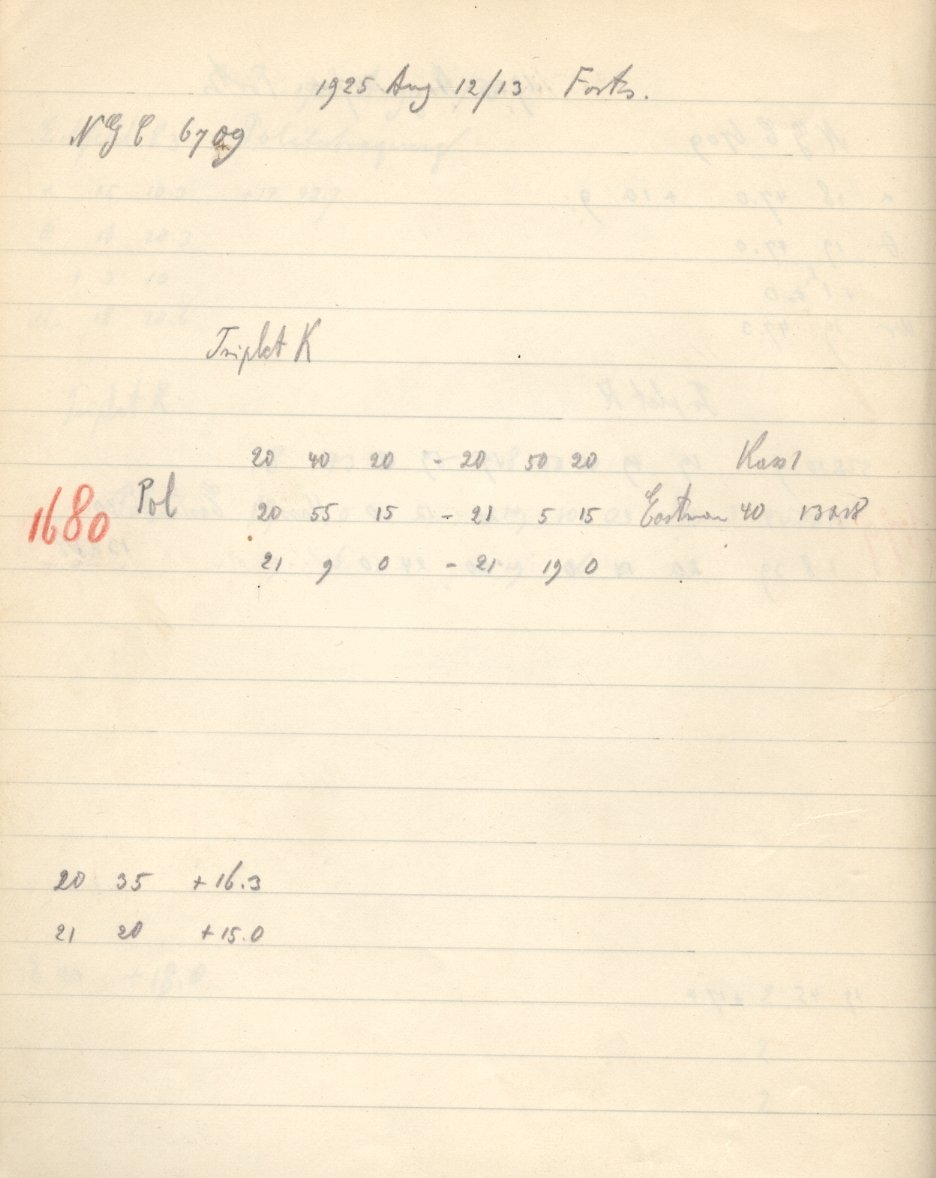 1925 Aug 12/13 Forts.
NGC 6709
Triplet K
20 40 20 - 20 50 20 Kass 1
1680 Pol 20 55 15 - 21 5 15 Eastman 40 13x18
21 9 0 - 21 19 0
20 35 +16.3
21 20 +15.0